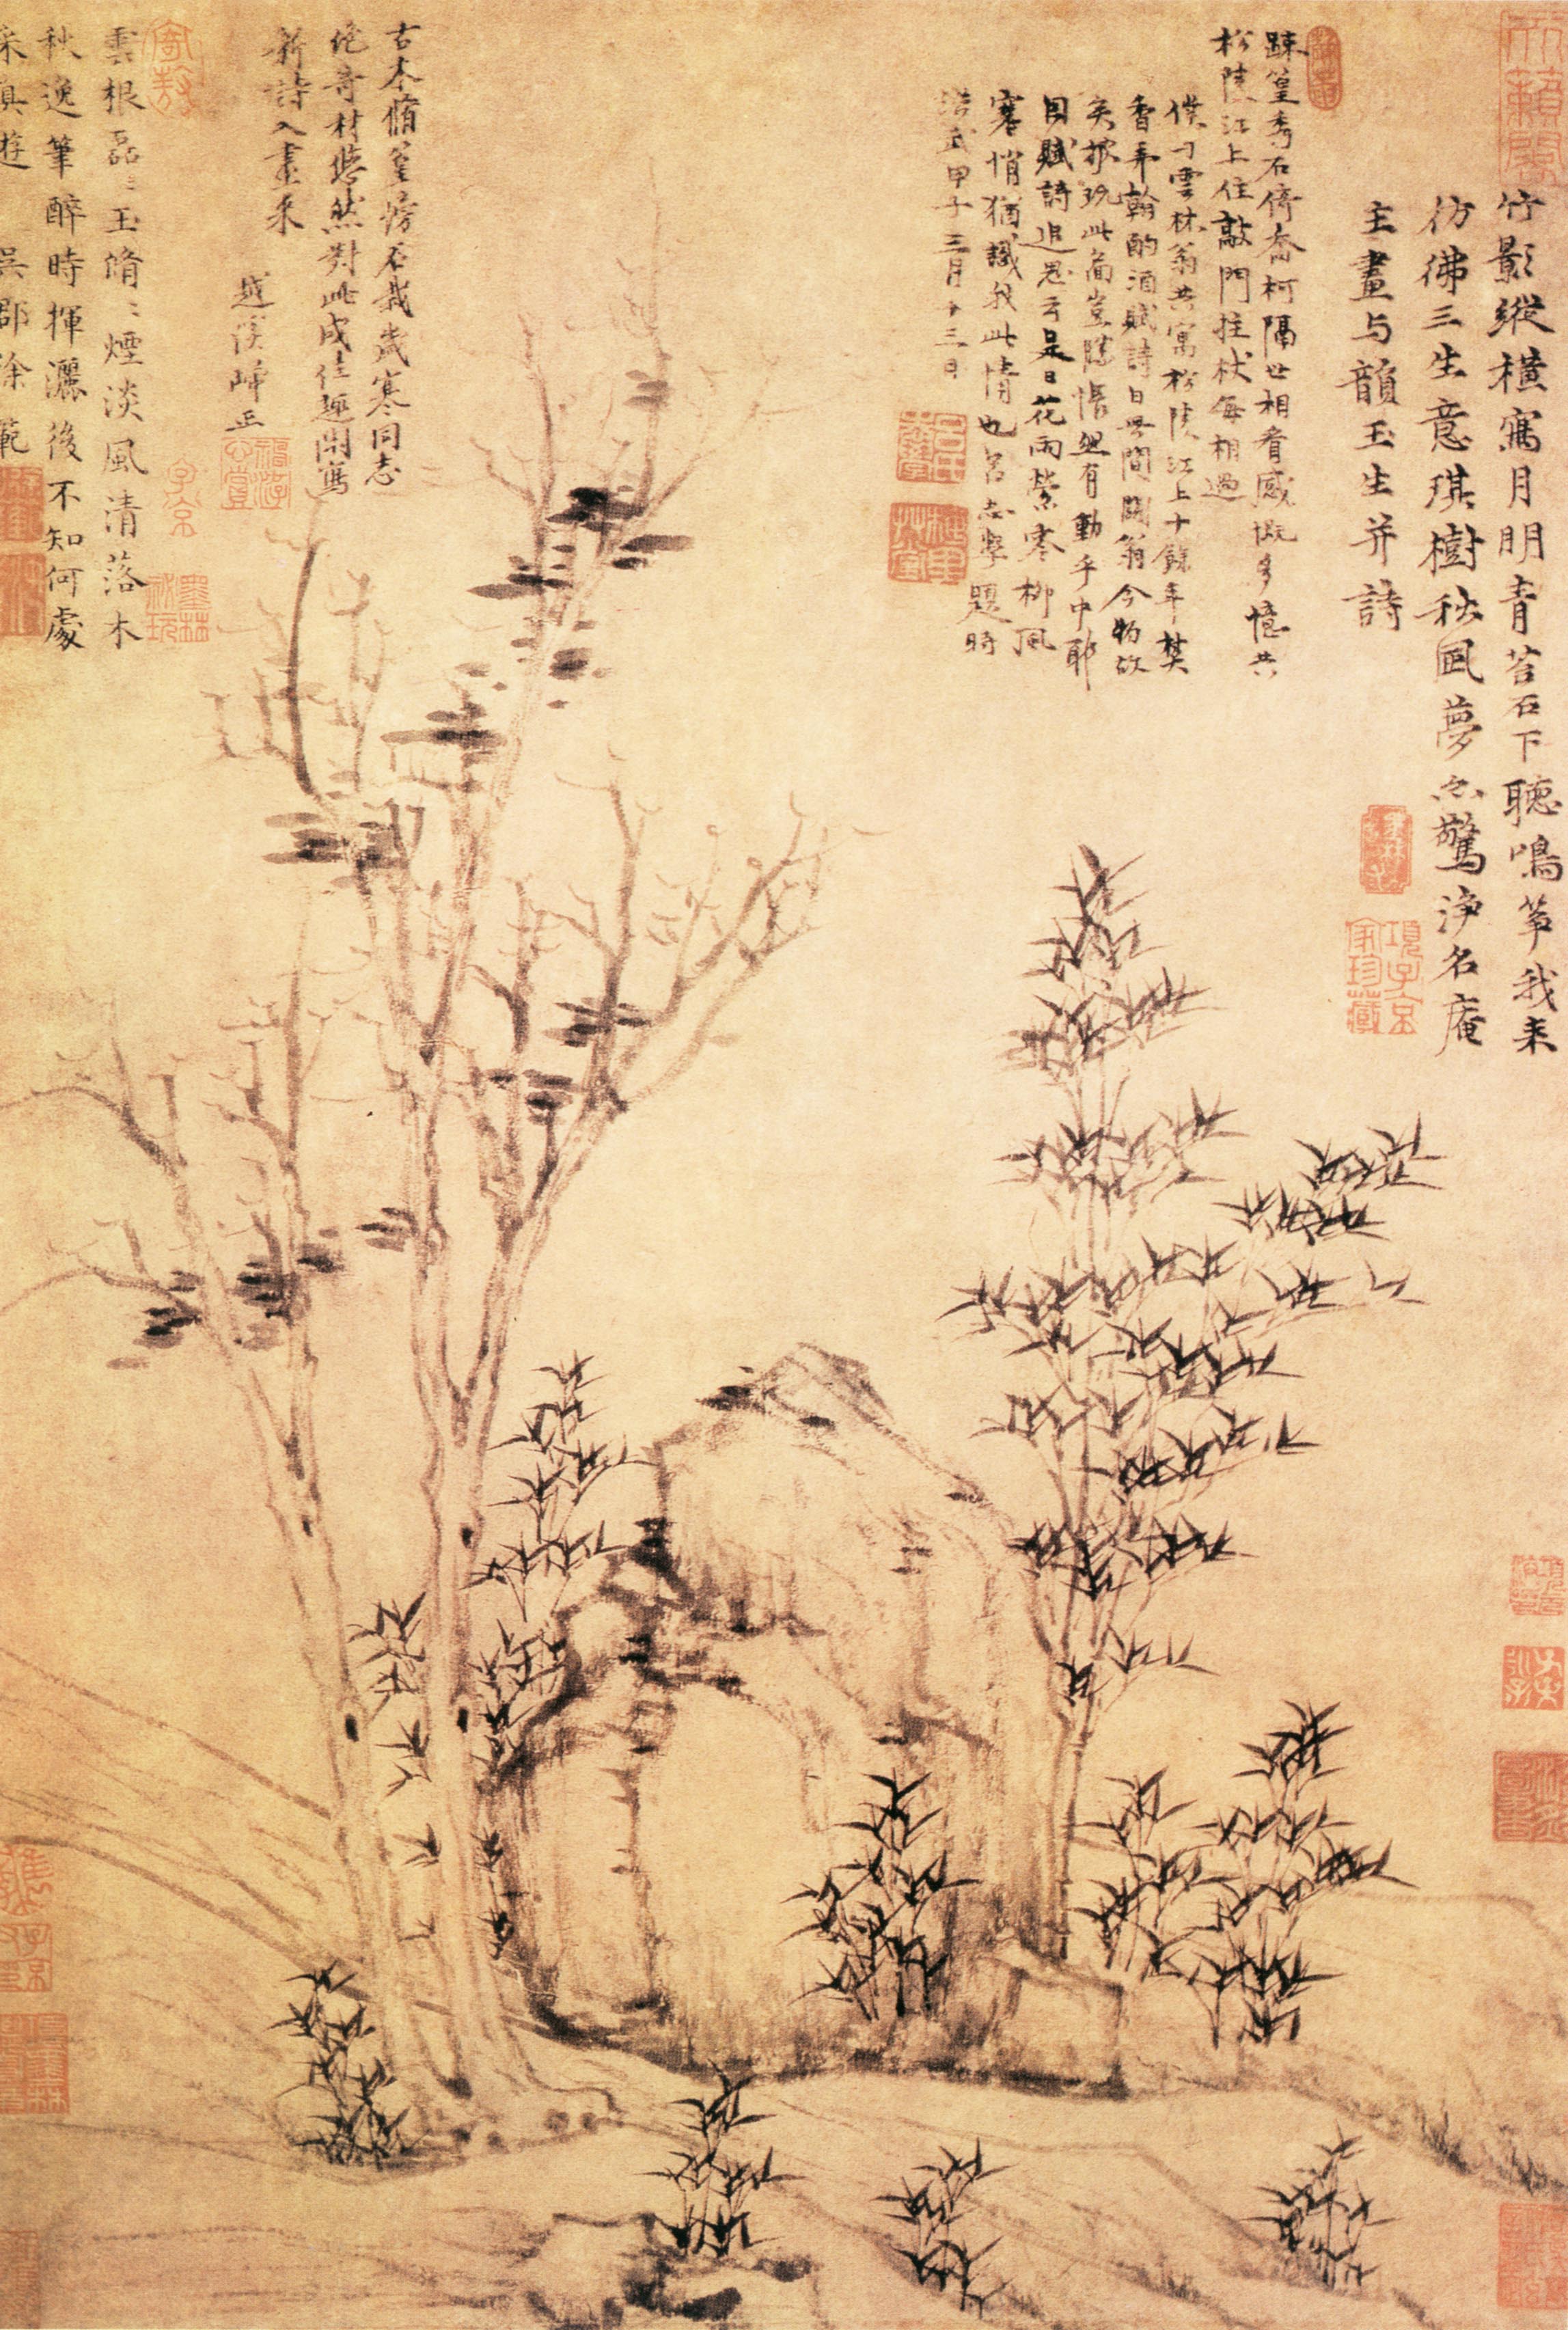 天籟閣
竹影縱橫寫月明青苔石下聽鳴箏我來
仿佛三生意琪樹秋囬夢亦驚淨名庵
主畫与韻玉生并詩
項子京家珍藏
疎篁秀石倚喬柯隔世相看感慨多憶共
松陵江上住敲門拄杖每相過
僕与雲林翁共寓松陵江上十餘年焚
香弄翰酌酒賦詩日無間闊翁今物故
矣披玩此圖豈勝悵然有動乎中耶
因賦詩追思云是日花雨縈寒柳風
寒悄猶識我此情也呂志學題時
洪武甲子三月十三日
古木脩篁倚石栽歲寒同志
絶奇材悠然對此成佳趣閑寫
新詩入畫來
越溪
子京
墨林祕玩
雲根磊々玉脩々煙淡風清落木
秋逸筆醉時揮灑後不知何處
采真遊 吳郡徐範